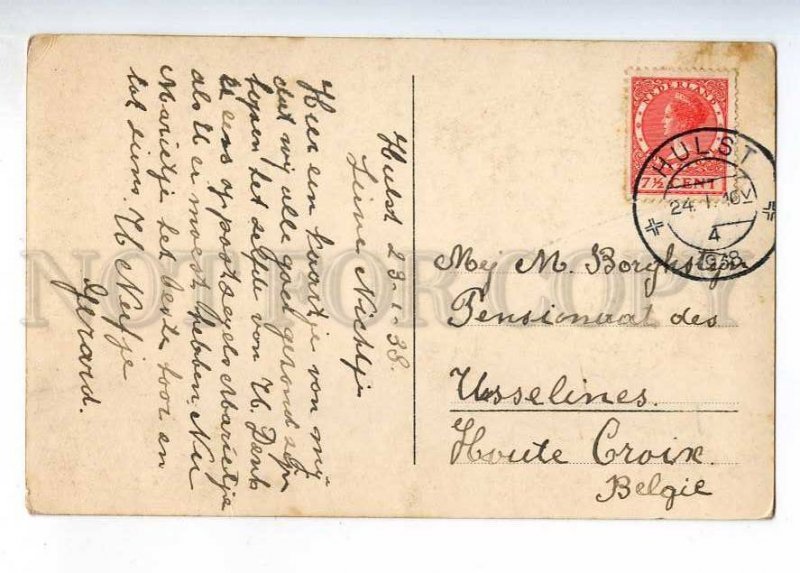 Hulst 23-1-38.
Lieve Nichtje
Hier een kaartje van mij
dat wij alle goed gezond zijn
hopen het zelfde van U. Denk
U eens op postzegels Marietje
als U er moest hebben, Nu
Marietje het beste hoor en
tot ziens. U Neefje
Gerard.
NEDERLAND
7½ CENT
HULST
24. 1. 10V
4
1938
Mej M. Borghstijn
Pensionaat des
Usselines.
Houte Croix.
Belgie
NOT FOR COPY